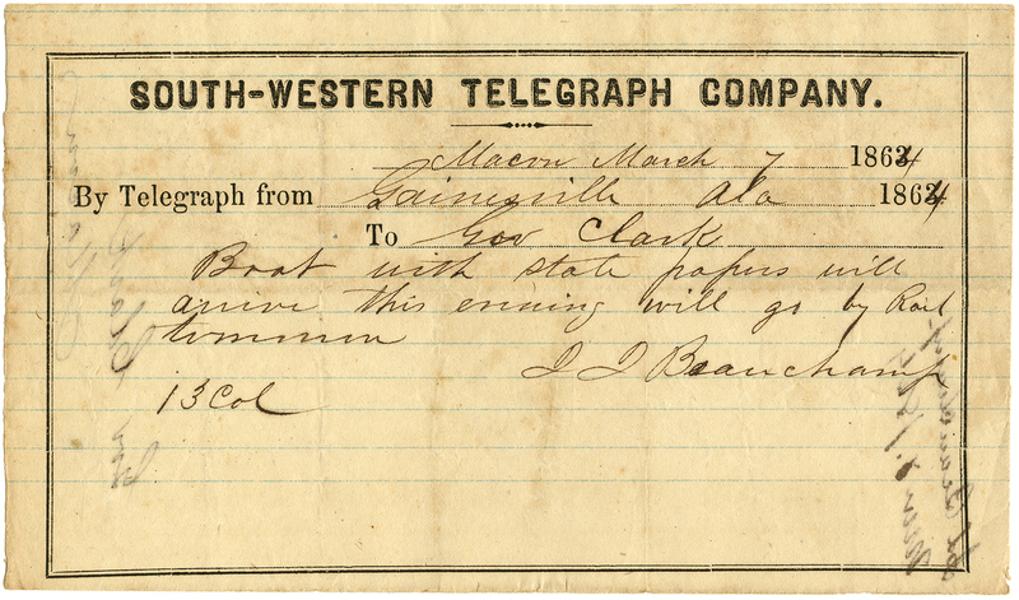 SOUTH-WESTERN TELEGRAPH COMPANY.
Macon March 7 1864
By Telegraph from Gainesville Ala 1864
To Gov Clark
Boat with state papers will
arrive this evening will go by Rail
tommorow
J J Beauchamp
13 Col